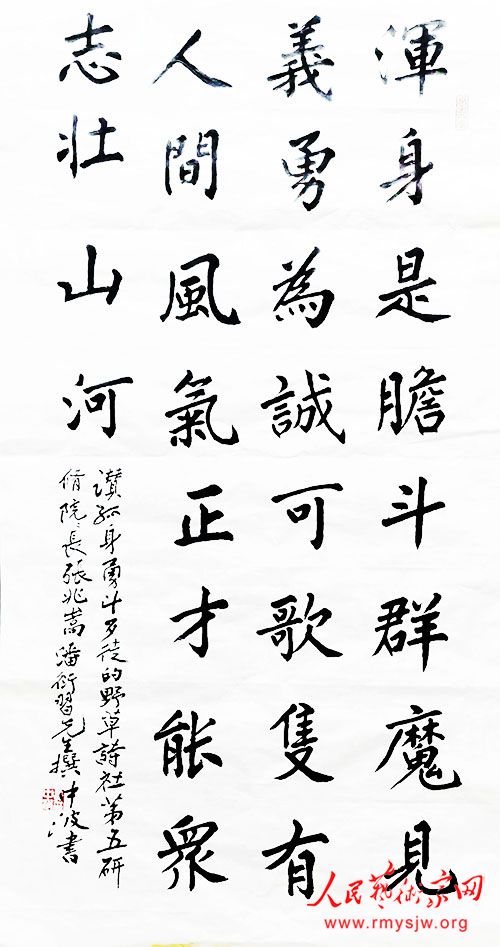 渾身是膽斗群魔見
義勇為誠可歌隻有
人間風氣正才能眾
志壯山河
讃孤身勇斗歹徒的野草詩社第五研
脩院長張兆嵩潘衍習先生撰中波書
人民藝術家网
www.rmysjw.org